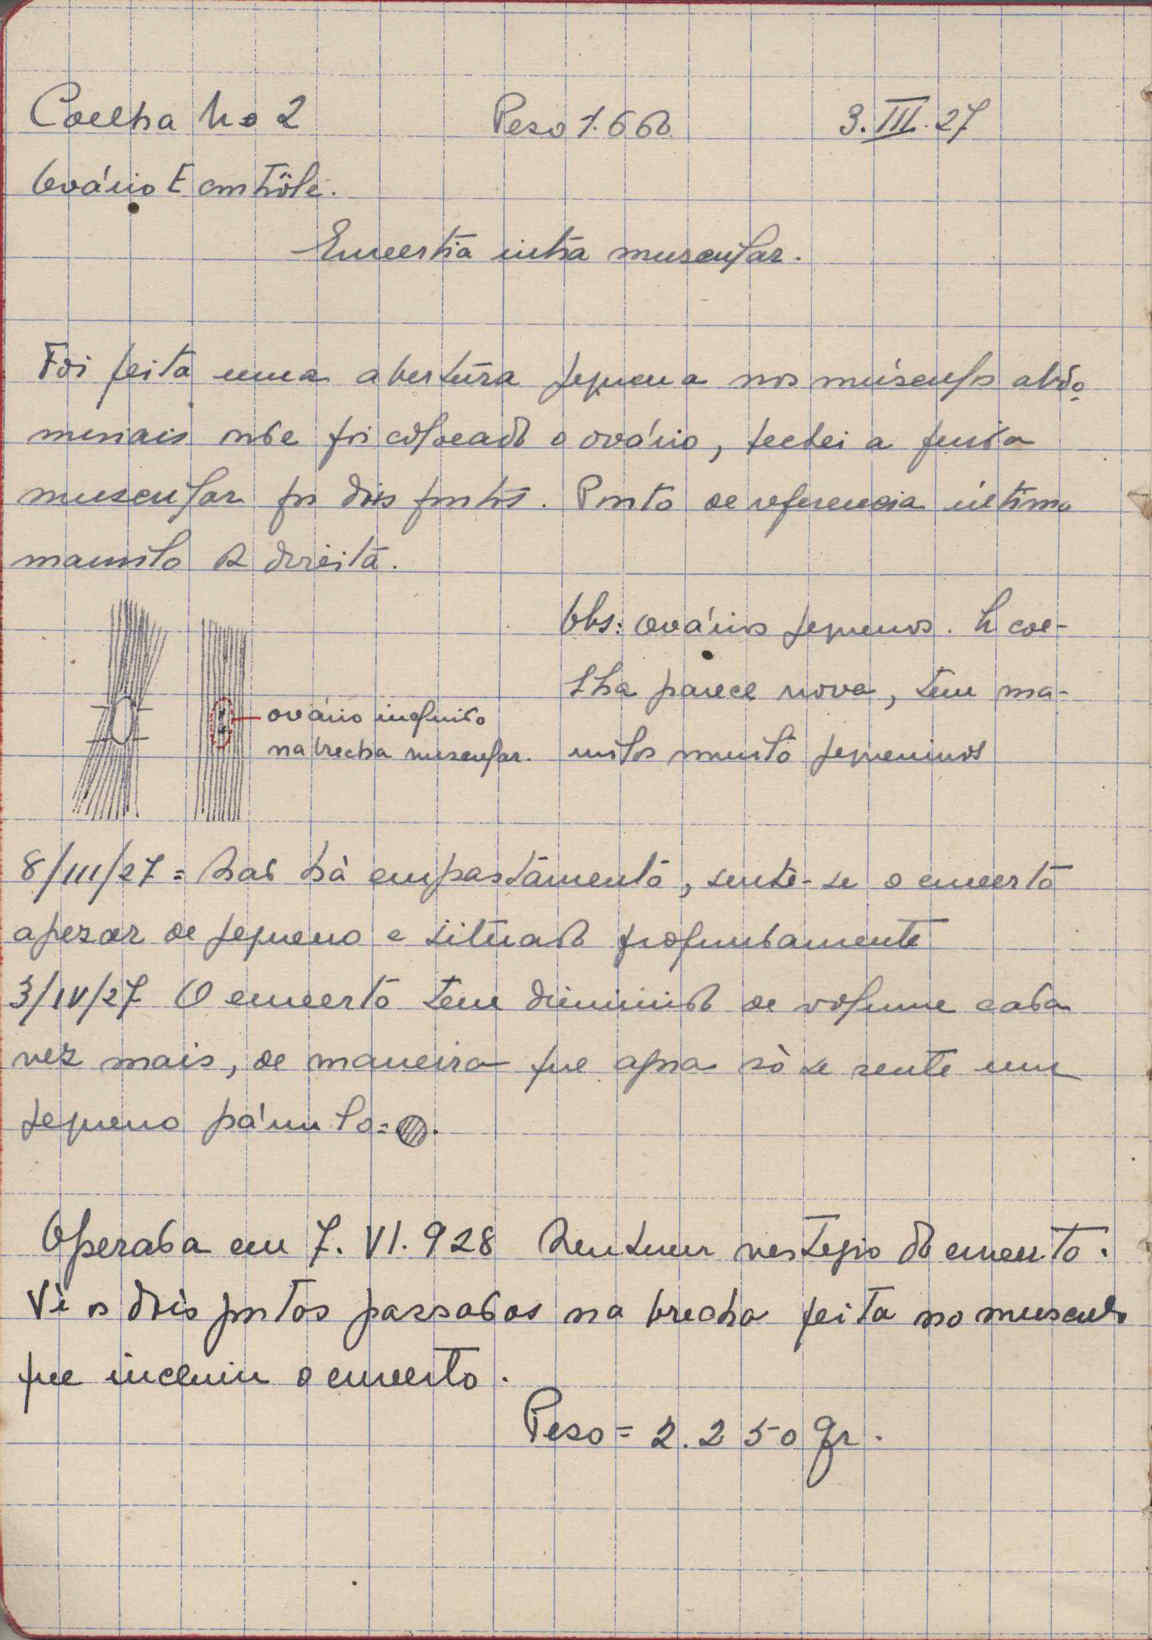 Coelha No 2 Peso 1.660 3.III.27
Ovário E contrôle.
Enxertia intra muscular.
Foi feita uma abertura pequena nos músculos abdo
minais onde foi colocado o ovário, fechei a fenda
muscular por dois pontos. Ponto de referencia ultimo
mamilo D direita.
Obs: ovários pequenos. A coe-
lha parece nova, tem ma-
milos muito pequeninos
ovário incluido
na brecha muscular.
8/III/27 = Não hà empastamento, sente-se o enxerto
apezar de pequeno e situado profundamente
3/IV/27 O enxerto tem diminuido de volume cada
vez mais, de maneira que agora sò se sente um
pequeno
Operada em 7.VI.928 Nenhum vestegio do enxerto.
Vi os dois pontos passados na brecha feita no musculo
que incluiu o enxerto.
Peso = 2.250 gr.